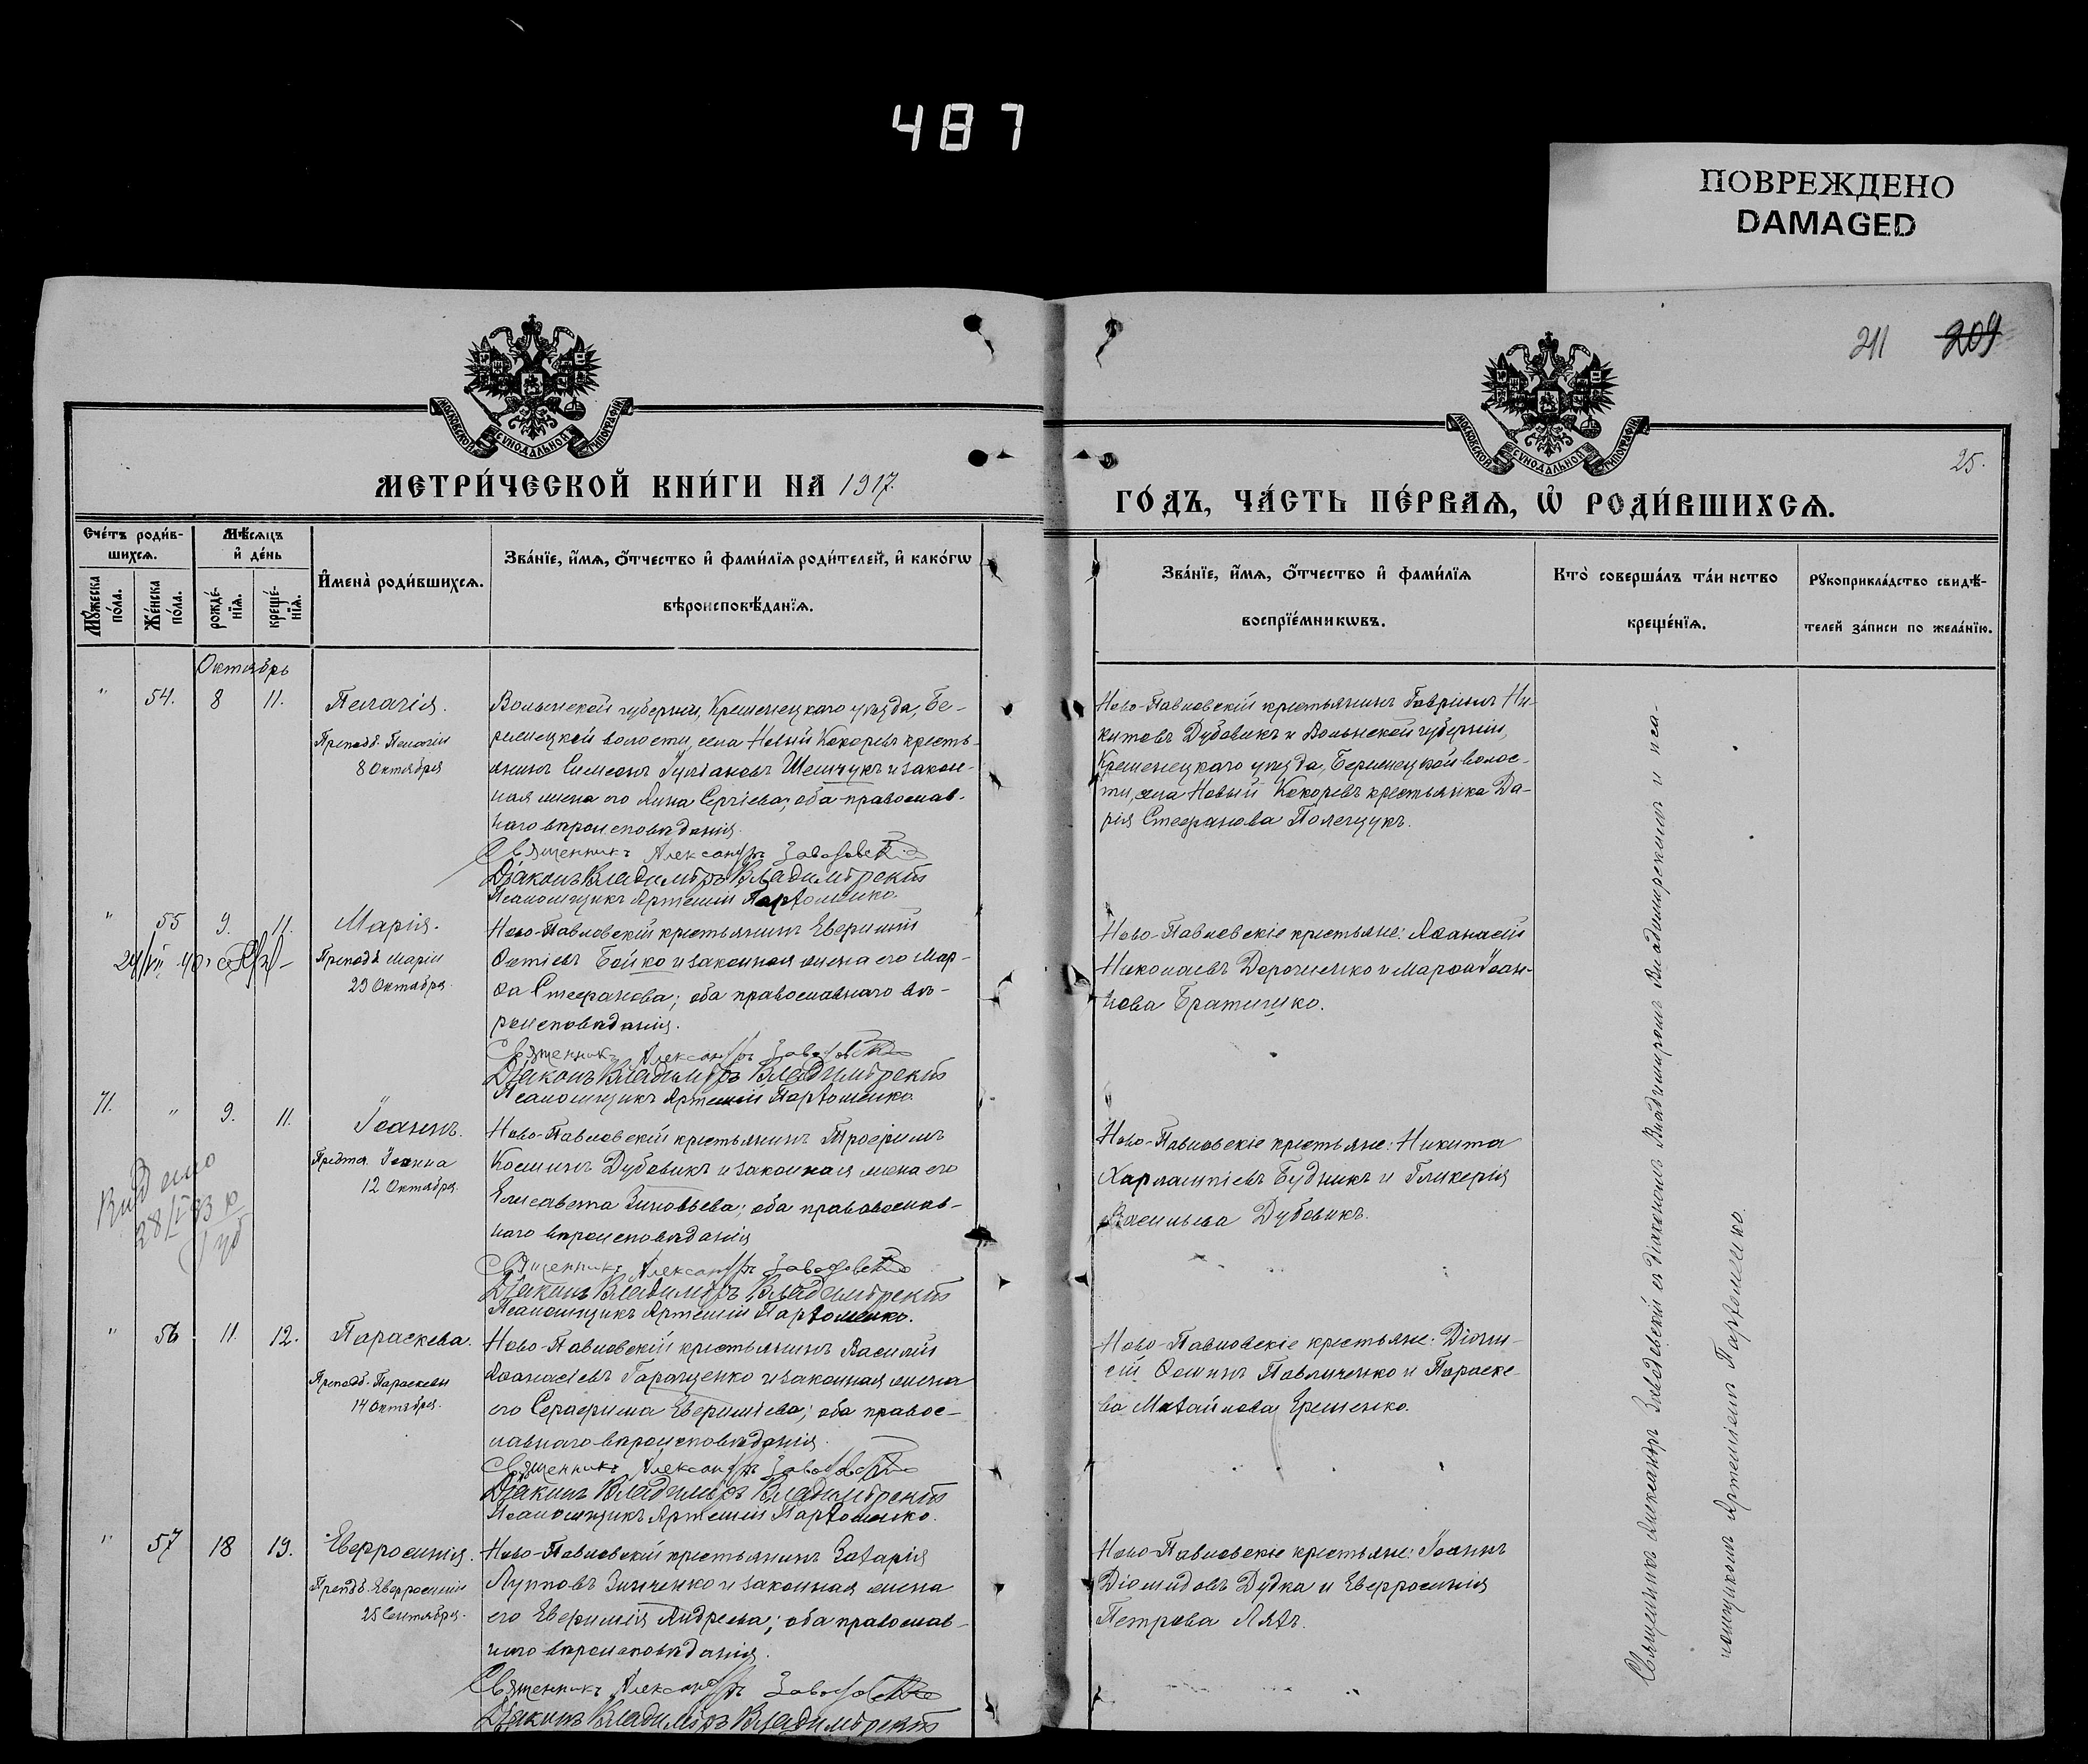 487
ПОВРЕЖДЕНО
DAMAGED
211 209
МОСКОВСКОЙ СѴНОДАЛЬНОЙ ТИПОГРАФІИ
МОСКОВСКОЙ СѴНОДАЛЬНОЙ ТИПОГРАФІИ
25.
МЕТРИ́ЧЕСКОЙ КНИ́ГИ НА 1917.
ГО́ДЪ, ЧА́СТЬ ПЕ́РВАѦ, Ѡ҆ РОДИ́ВШИХСѦ.
Сче́тъ роди́в-
шихсѧ.
Мѣ́сѧцъ
и҆ де́нь
Мꙋ́жеска
по́ла.
Же́нска
по́ла.
рожде́-
нїѧ.
креще́-
нїѧ.
И҆мена̀ роди́вшихсѧ.
Зва́нїе, и҆́мѧ, ѻ҆́тчество и҆ фами́лїѧ роди́телей, и҆ како́гѡ
вѣроисповѣ́данїѧ.
Зва́нїе, и҆́мѧ, ѻ҆́тчество и҆ фами́лїѧ
воспрїе́мникѡвъ.
Кто̀ соверша́лъ та́инство
креще́нїѧ.
Рꙋкоприкла́дство свидѣ́-
телей за́писи по жела́нїю.
Октябрь
" 54. 8 11. Пелагія.
Препод. Пелагіи
8 Октября
Волынской губерніи, Кременецкаго уѣзда, Бе-
режецкой волости, села Новый Кокоревъ кресть-
янинъ Симеонъ Іуліановъ Шевчукъ и закон-
ная жена его Анна Сергіева; оба православ-
наго вѣроисповѣданія.
Священникъ Александръ Заводовскій
Діаконъ Владиміръ Владимірскій
Псаломщикъ Артемій Пархоменко.
Ново-Павловскій крестьянинъ Гавріилъ Ни-
китовъ Дубовикъ и Волынской губерніи,
Кременецкаго уѣзда, Бережецкой волос-
ти, села Новый Кокоревъ крестьянка Да-
рія Стефанова Полещукъ.
" 55 9. 11. Марія.
Препод. Маріи
29 Октября.
Ново-Павловскій крестьянинъ Евфимій
Фотіевъ Бойко и законная жена его Мар-
фа Стефанова; оба православнаго вѣ-
роисповѣданія.
Священникъ Александръ Заводовскій
Діаконъ Владиміръ Владимірскій
Псаломщикъ Артемій Пархоменко
Ново-Павловскіе крестьяне: Аѳанасій
Николаевъ Дорошенко и Марѳа Іоан-
нова Братишко.
71. " 9. 11. Іоаннъ.
Предтеч. Іоанна
12 Октября.
Видено
28/I 33 к
Ново-Павловскій крестьянинъ Трофимъ
Косминъ Дубовикъ и законная жена его
Елисавета Зиновьева; оба православ-
наго вѣроисповѣданія
Священникъ Александръ Заводовскій
Діаконъ Владиміръ Владимірскій
Псаломщикъ Артемій Пархоменко.
Ново-Павловскіе крестьяне: Никита
Харлампіевъ Будникъ и Гликерія
Васильева Дубовикъ.
" 56 11. 12. Параскева.
Препод. Параскевы
14 Октября.
Ново-Павловскій крестьянинъ Василій
Аѳанасіевъ Геращенко и законная жена
его Серафима Евфиміева; оба правос-
лавнаго вѣроисповѣданія.
Священникъ Александръ Заводовскій
Діаконъ Владиміръ Владимірскій
Псаломщикъ Артемій Пархоменко.
Ново-Павловскіе крестьяне: Діони-
сій Ѳоминъ Павличенко и Параске-
ва Михайлова Ерешенко.
" 57 18 19. Евфросинія.
Препод. Евфросиніи
25 Сентября.
Ново-Павловскій крестьянинъ Захарія
Лупповъ Зинченко и законная жена
его Евфимія Андреева; оба православ-
наго вѣроисповѣданія.
Священникъ Александръ Заводовскій
Діаконъ Владиміръ Владимірскій
Ново-Павловскіе крестьяне: Іоаннъ
Діомидовъ Дудка и Евфросинія
Петрова Ляхъ.
Священникъ Александръ Заводовскій съ діакономъ Владиміромъ Владимірскимъ и пса-
ломщикомъ Артеміемъ Пархоменко.